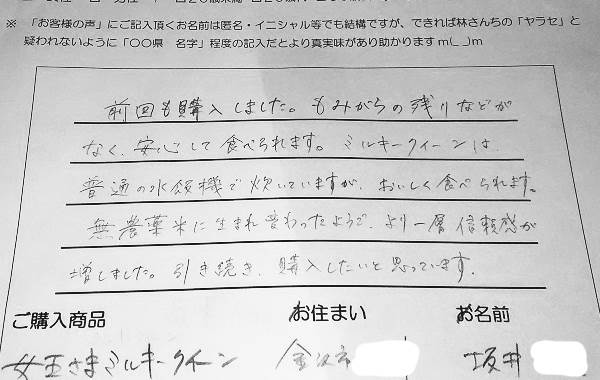 ※ 「お客様の声」にご記入頂くお名前は匿名・イニシャル等でも結構ですが、できれば林さんちの「ヤラセ」と
疑われないように「〇〇県 名字」程度の記入だとより真実味があり助かりますm(_ _)m
前回も購入しました。もみがらの残りなどが
なく、安心して食べられます。ミルキークイーンは
普通の炊飯機で炊いていますが、おいしく食べられます。
無農薬米に生まれ変わったようで、より一層信頼感が
増しました。引き続き、購入したいと思っています。
ご購入商品 お住まい お名前
女王さまミルキークイーン 金沢市 坂井